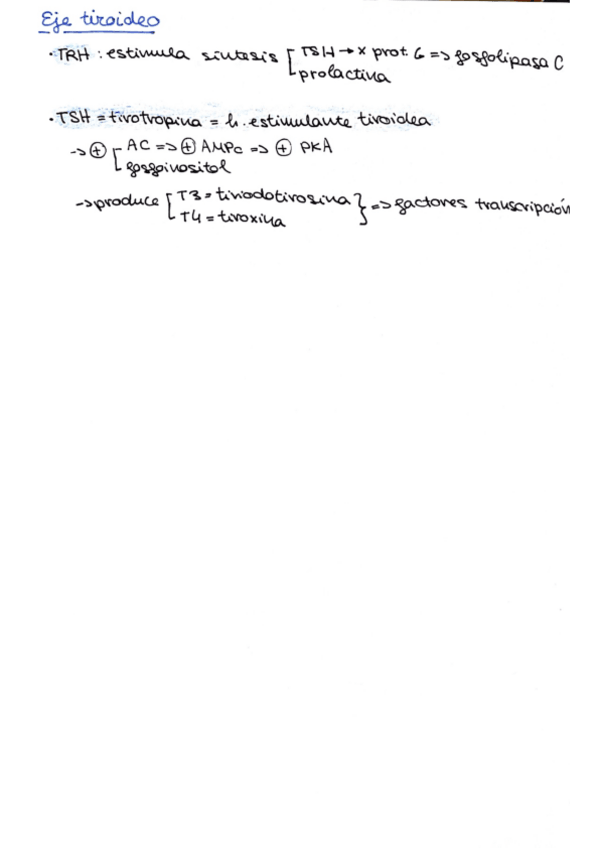 Eje tiroideo
· TRH : estimula síntesis [ TSH → x prot. G => fosfolipasa C
prolactina
· TSH = tirotropina = h. estimulante tiroidea
-> ⊕ [ AC => ⊕ AMPc => ⊕ PKA
fosfoinositol
-> produce [ T3 = triiodotirosina } => factores transcripción
T4 = tiroxina